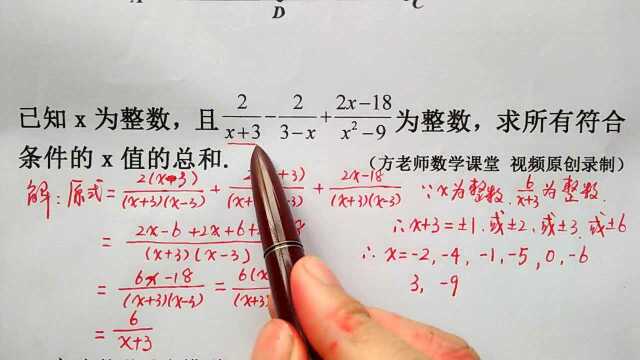 D
C
已知 x 为整数，且 2/(x+3) - 2/(3-x) + (2x-18)/(x²-9) 为整数，求所有符合
条件的 x 值的总和.
（方老师数学课堂 视频原创录制）
解：原式 = 2(x-3)/((x+3)(x-3)) + +3)/(x -3) + 2x-18/((x+3)(x-3))
= 2x-6+2x+6+ 8/((x+3)(x-3))
= 6x-18/((x+3)(x-3)) = 6(x /(x+3)
= 6/(x+3)
∵ x为整数, 6/(x+3) 为整数.
∴ x+3=±1, 或±2, 或±3, 或±6
∴ x=-2, -4, -1, -5, 0, -6
3, -9